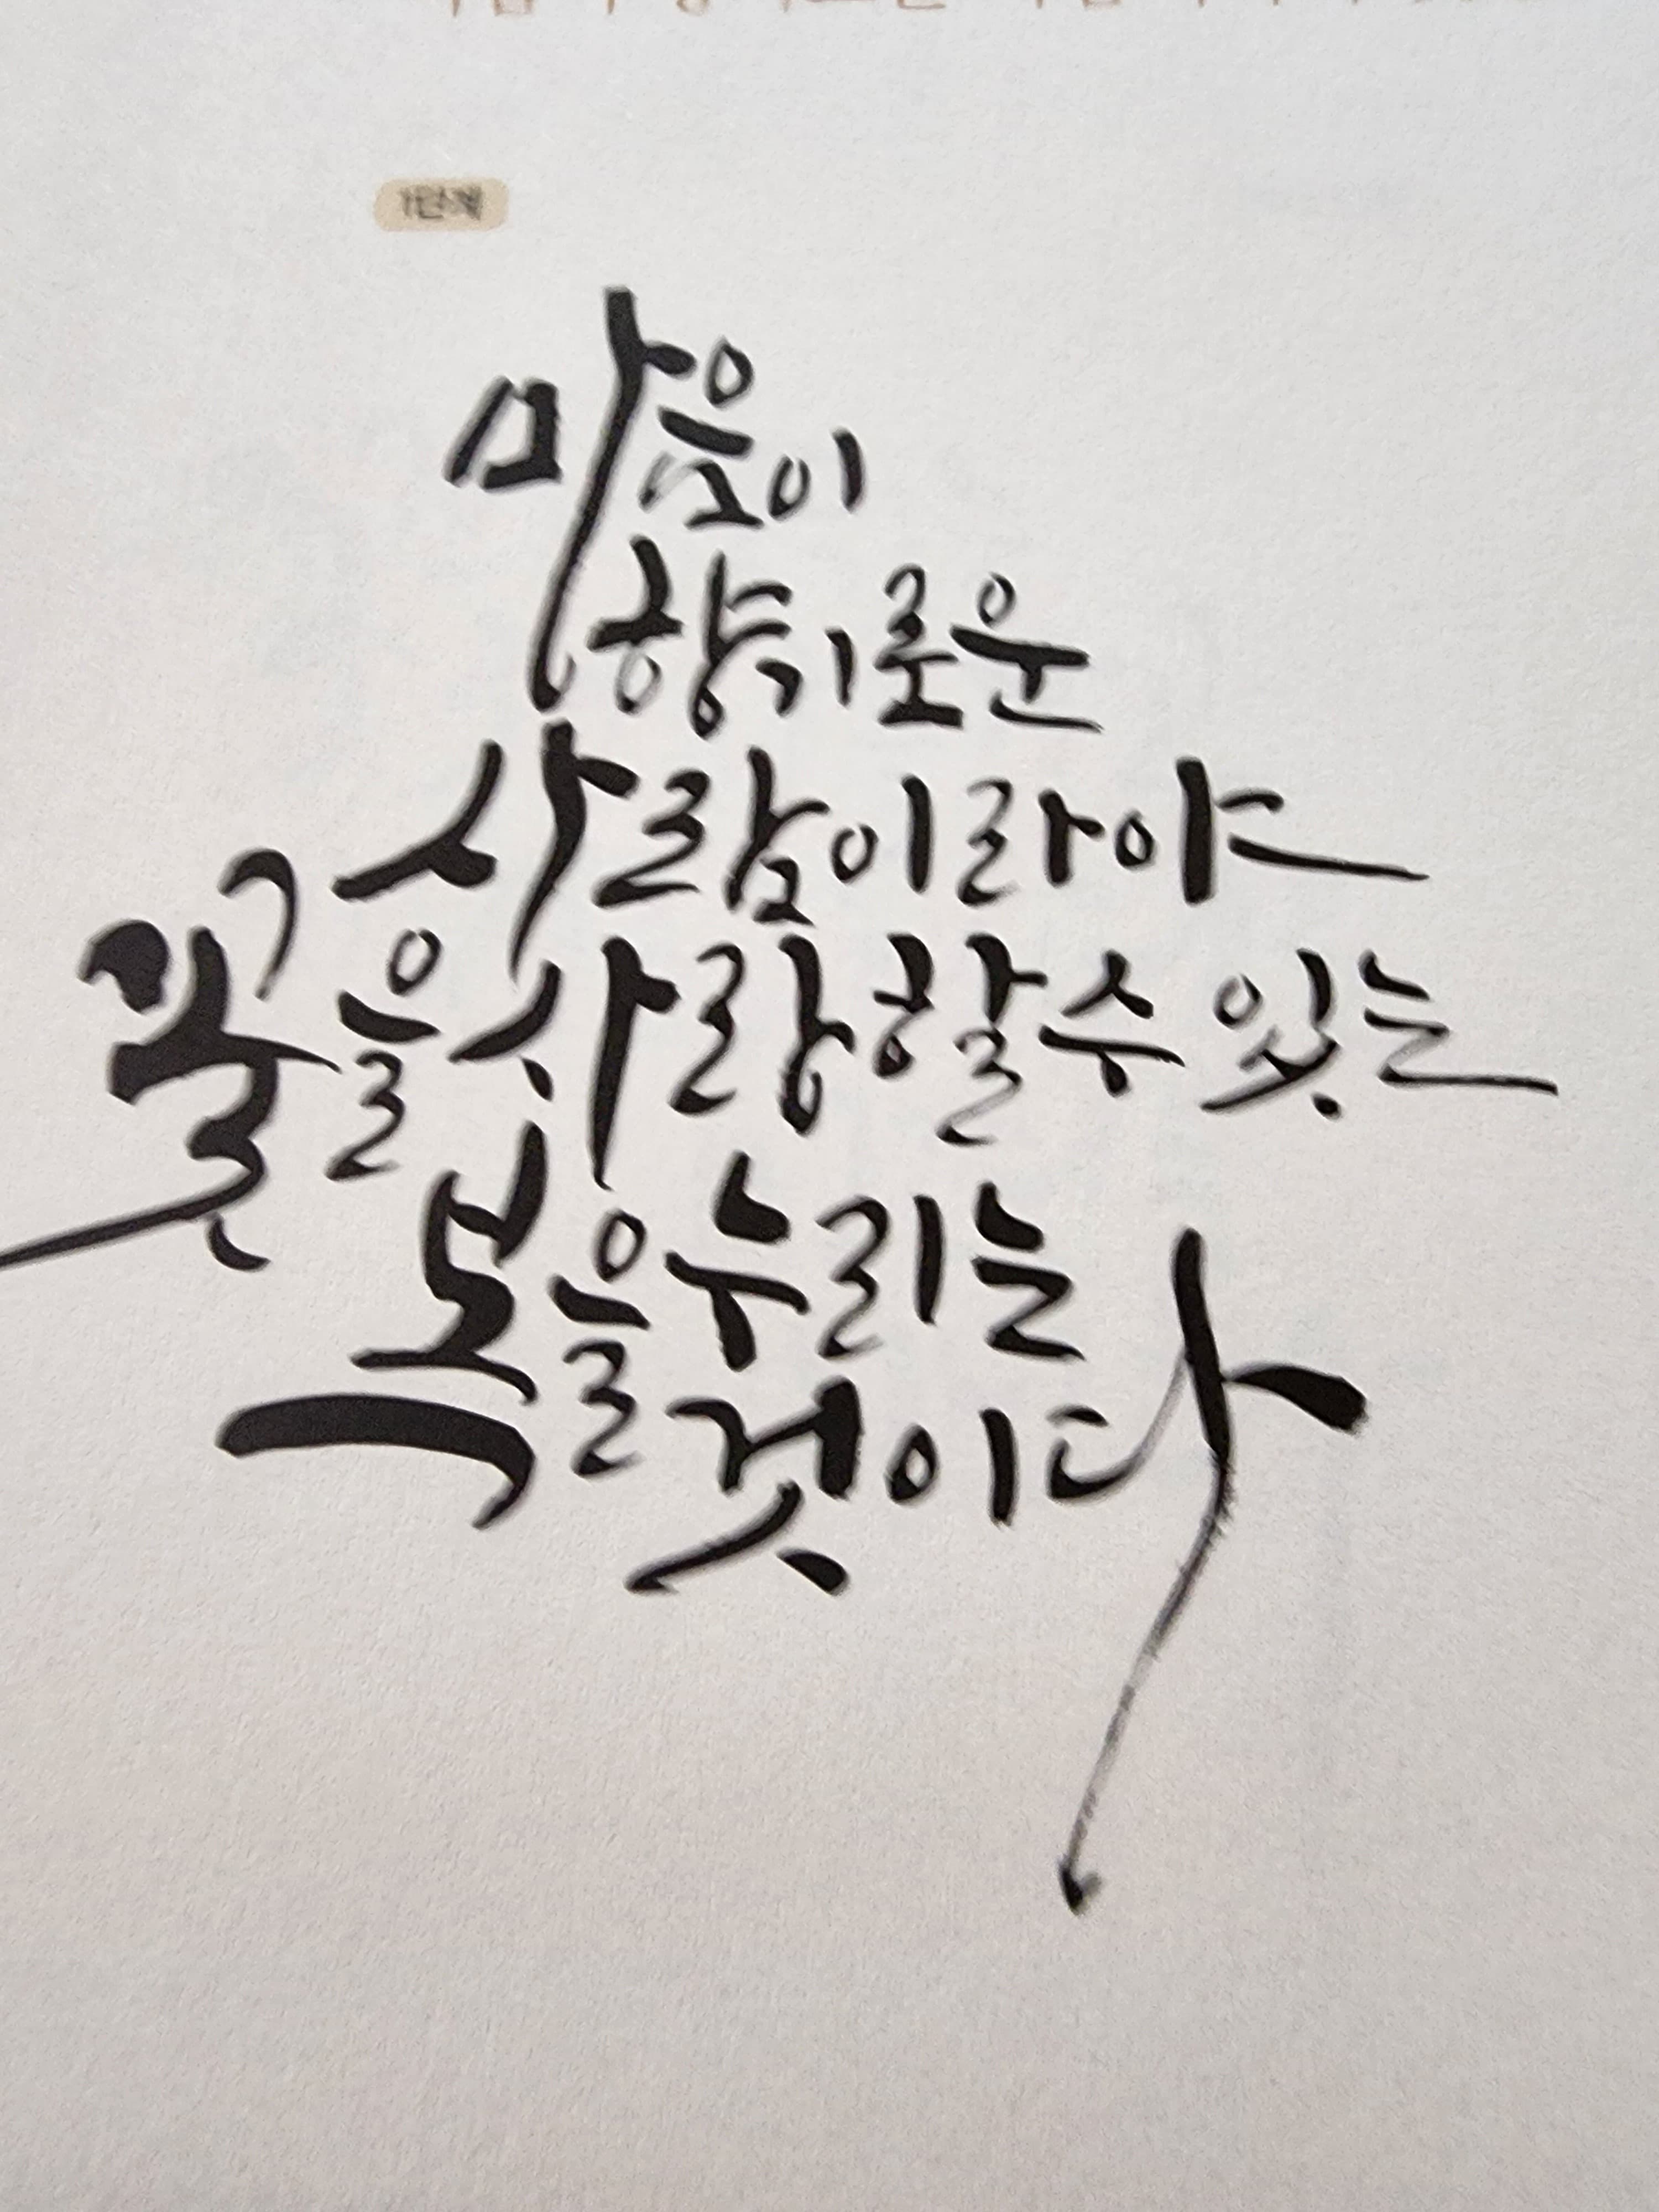 1단계
마음이
향기로운
사람이라야
꽃을 사랑할 수 있는
복을 누리는
것이다